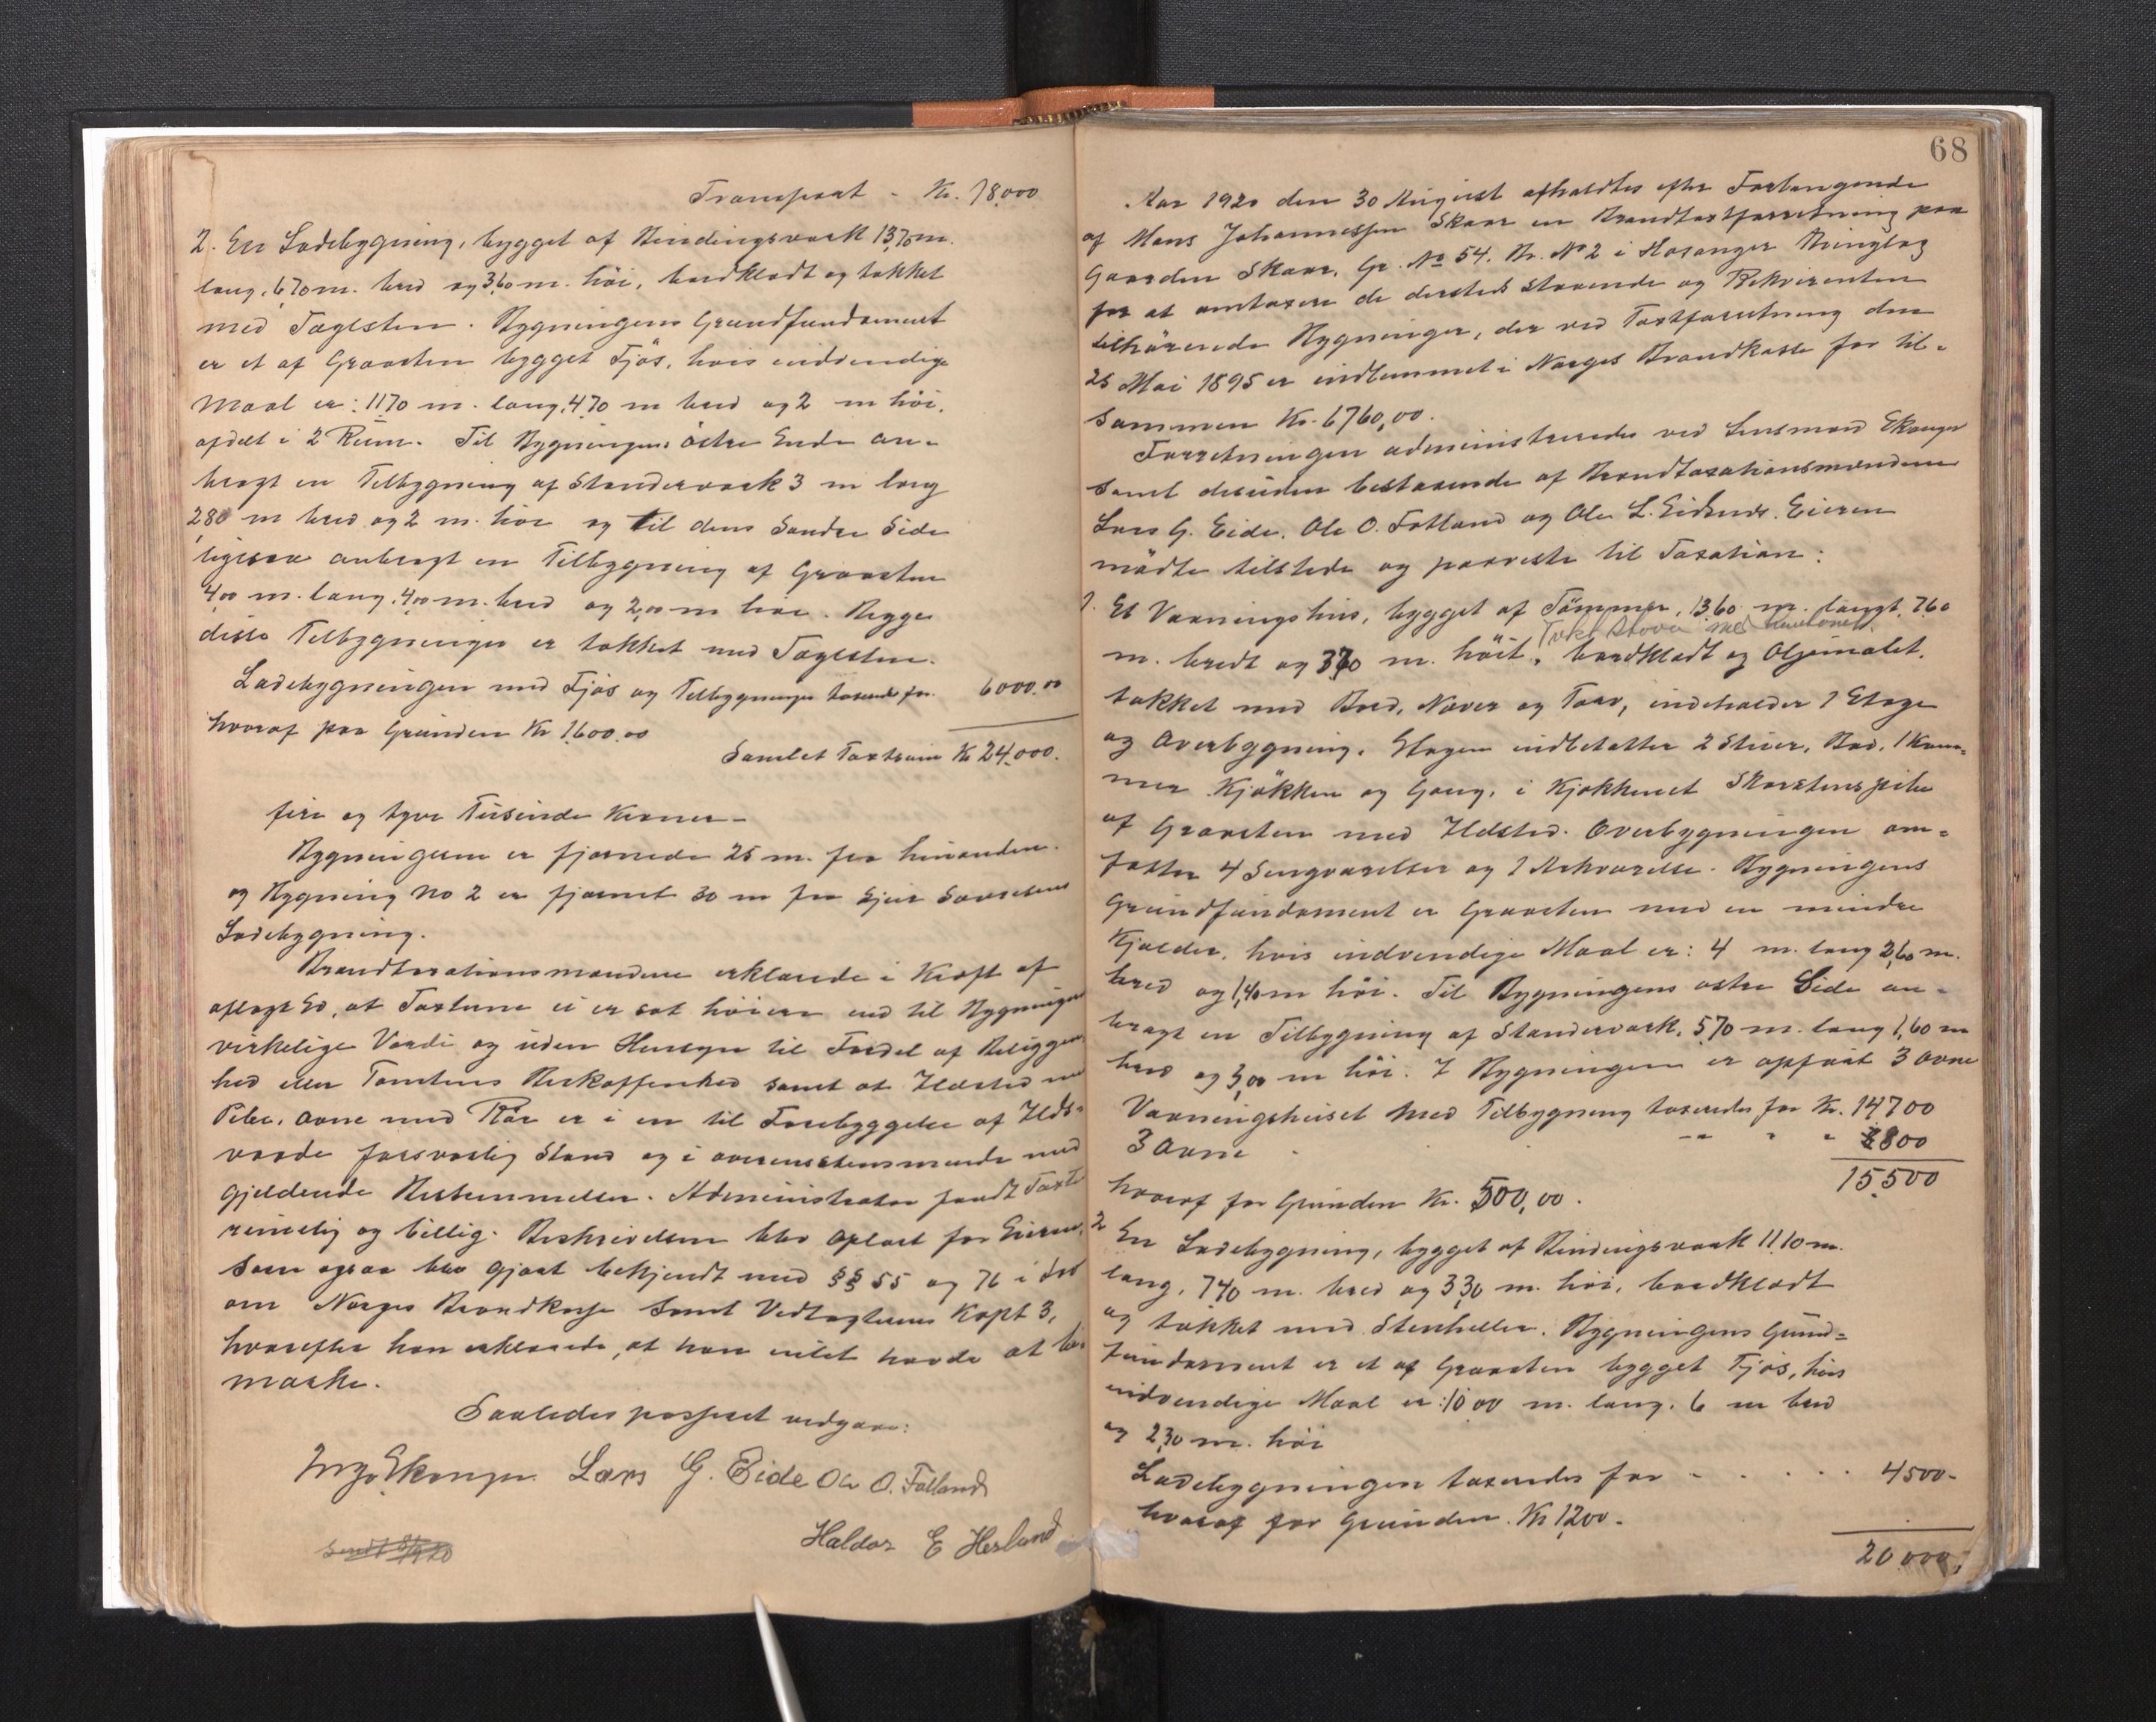 Transport - Kr. 18000
2. En Ladebygning, bygget af Bindingsværk 13,70 m.
lang, 6,70 m. bred og 3,60 m. höi, bordklædt og tækket
med Taglsten. Bygningens Grundfundament
er et af Graasten bygget Fjös, hvis indvendige
Maal er: 11,70 m. lang, 4,70 m bred og 2 m höi,
afdelt i 2 Rum. Til Bygningens östre Ende an-
bragt en Tilbygning af Standerværk 3 m lang
2,80 m bred og 2 m. höi og til dens Söndre Side
ligesaa anbragt en Tilbygning af Graasten
4,00 m. lang, 4,00 m. bred og 2,00 m höi. Begge
disse Tilbygninger er tækket med Taglsten.
Ladebygningen med Fjös og Tilbygninger taxeredes for 6000.00
hvoraf paa Grunden Kr 1600.00
Samlet Taxtsum Kr 24.000.
fire og tyve Tusinde Kroner -
Bygningerne er fjernede 25 m. fra hinanden.
og Bygning No 2 er fjernet 30 m fra
Ladebygning.
Brandtaxationsmændene erklærede i Kraft af
aflagt Ed, at Taxterne ei er sat höiere end til Bygningens
virkelige Værdi og uden Hensyn til Fordel af Beliggen
hed eller Tomtens Beskaffenhed samt at Ildsted med
Piber, Ovne med Rör er i en til Forebyggelse af Ilds-
vaade forsvarlig Stand og i overensstemmende med
gjeldende Bestemmelser. Administrator fandt Taxten
rimelig og billig. Beskrivelsen blev oplæst for Eieren,
som ogsaa blev gjort bekjendt med §§ 55 og 76 i Lov
om Norges Brandkasse samt Vedtægternes Kapt 3,
hvorefter han erklærede, at han intet havde at be
mærke.
Saaledes passeret vedgaar:
Ekanger Lars G. Eide Ole O. Fotland
Haldor E Herland
68
Aar 1920 den 30 August afholdtes efter Forlangende
af Mons Johannessen Skaar en Brandtaxtforretning paa
Gaarden Skaar, Gr. No 54. Br. No 2 i Hosanger Thinglag
for at omtaxere de dersteds staaende og Rekvirenten
tilhörende Bygninger, der ved Taxtforretning den
25 Mai 1895 er indlemmet i Norges Brandkasse for til-
sammen Kr. 6760,00.
Forretningen administreredes ved Lensmand Ekanger
samt desuden bestaaende af Brandtaxationsmændene
Lars G. Eide, Ole O. Fotland og Ole L. Eidsnes. Eieren
mödte tilstede og paaviste til Taxation:
1. Et Vaaningshus, bygget af Tömmer, 13,60 m. langt, 7,60
m. bredt og 3,70 m. höit, bordklædt og Oljemalet,
tækket med Bord, Næver og Torv, indeholder 1 Etage
og Overbygning. Etagen indbefatter 2 Stuer, Bod, 1 Kam-
mer Kjökken og Gang, i Kjökkenet Skorstenspibe
af Graasten med Ildsted. Overbygningen om-
fatter 4 Soveværelser og 1 Mörkværelse. Bygningens
Grundfundament er Graasten med en mindre
Kjælder, hvis indvendige Maal er: 4 m. lang 2,60 m.
bred og 1,40 m höi. Til Bygningens östre Side an-
bragt en Tilbygning af Standerværk, 5,70 m. lang 1,60 m
bred og 3,00 m höi. I Bygningen er opsat 3 Ovne
Vaaningshuset med Tilbygning taxeredes for Kr. 14700
3 Ovne - - - - 800
15.500
hvoraf for Grunden Kr. 500,00.
2 En Ladebygning, bygget af Bindingsværk 11,10 m.
lang, 7,40 m. bred og 3,30 m. höi, bordklædt
og tækket med Stenheller. Bygningens Grund-
fundament er et af Graasten bygget Fjös, hvis
indvendige Maal er: 10,00 m. lang, 6 m bred
og 2,30 m. höi
Ladebygningen taxeredes for - . . . . 4500-
hvoraf for Grunden. Kr 1200-
20.000,